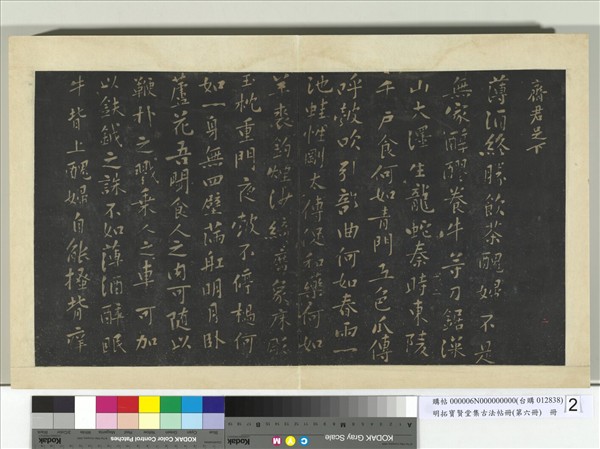 齋君足下
薄酒終勝飲茶醜婦不是
無家醇醪養牛等刀鋸深
山大澤生龍蛇秦時東陵
千戶食何如青門五色瓜傳
呼鼓吹引部曲何如春雨一
池蛙性剛太傅促和藥何如
羊裘釣煙沙綺席象床雕
玉枕重門夜鼓不停撾何
如一身無四壁滿船明月臥
蘆花吾聞食人之肉可隨以
鞭朴之戮乘人之車可加
以鈇鉞之誅不如薄酒醉眠
牛背上醜婦自能搔背癢
購帖 000006N000000000(台購 012838)
明拓寶賢堂集古法帖冊(第六冊) 冊
2
KODAK Color Control Patches
KODAK Gray Scale
C Y M
Kodak